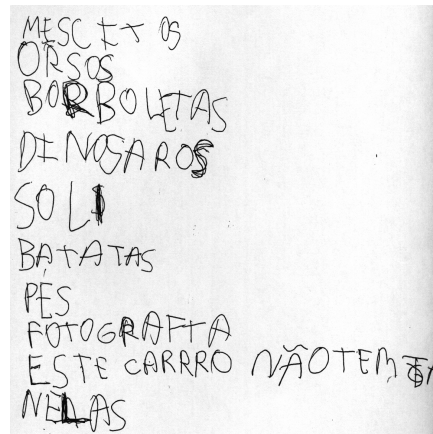 MESCITOS
ORSOS
BORBOLETAS
DINOSAROS
SOLI
BATATAS
PÉS
FOTOGRAFIA
ESTE CARRRO NÃO TEM
NELAS